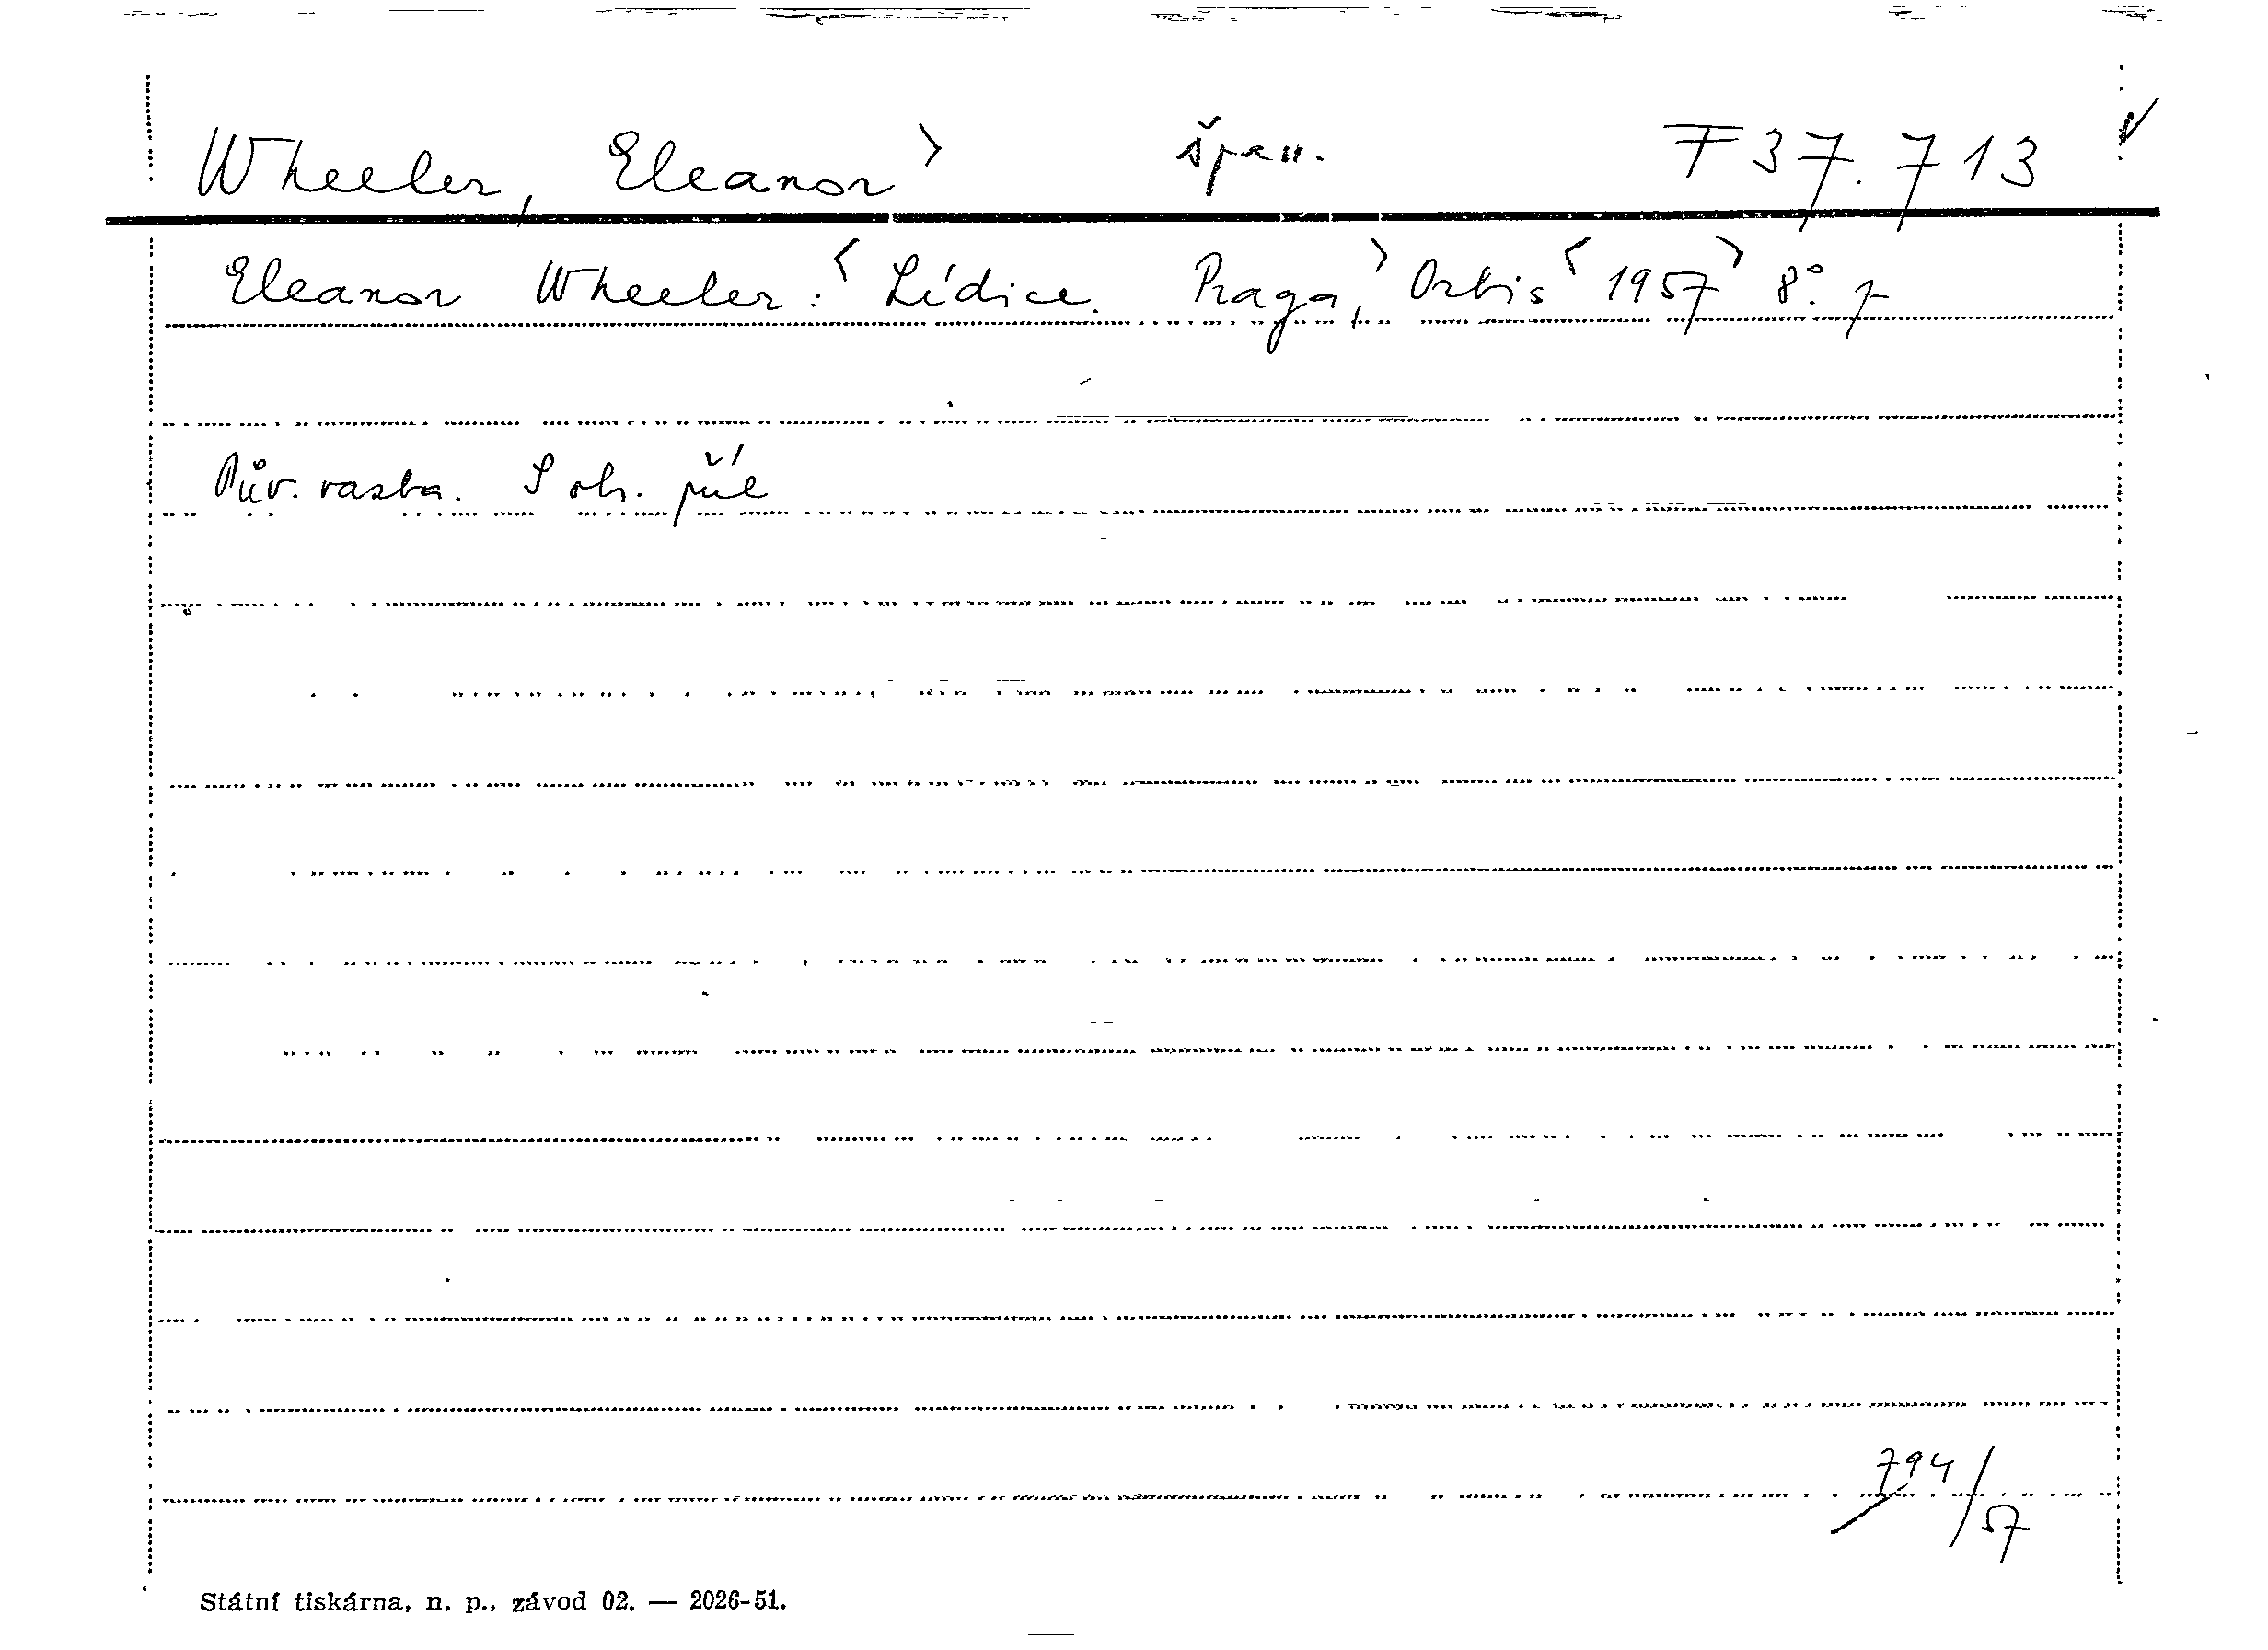 Wheeler, Eleanor > špan. F 37.713
Eleanor Wheeler: < Lídice. Praga, > Orbis < 1957 > 8°.
Pův. vazba. S ob. příl
794/57
Státní tiskárna, n. p., závod 02. — 2026-51.